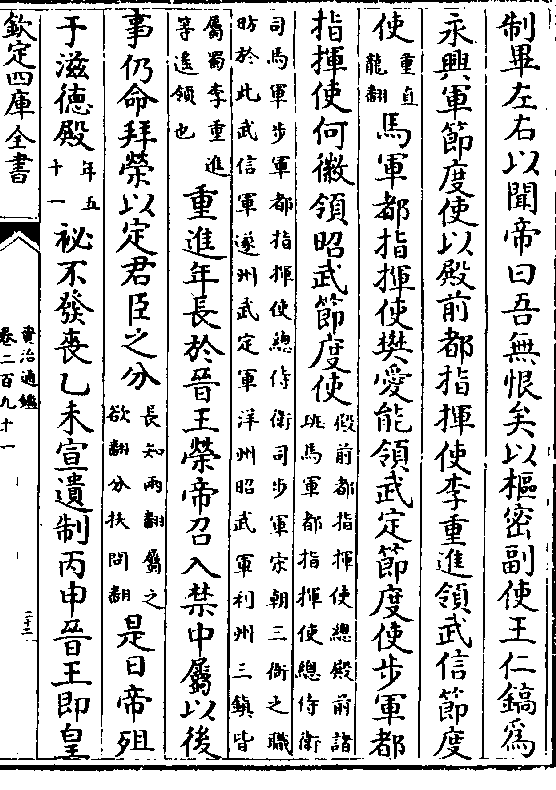 制畢左右以聞帝曰吾無恨矣以樞密副使王仁鎬爲
永興軍節度使以殿前都指揮使李重進領武信節度
使重直龍翻馬軍都指揮使樊愛能領武定節度使步軍都
指揮使何徽領昭武節度使殿前都指揮使總殿前諸班馬軍都指揮使總侍衛
司馬軍步軍都指揮使總侍衛司步軍宋朝三衙之職
昉於此武信軍遂州武定軍洋州昭武軍利州三鎮皆
屬蜀李重進等遙領也重進年長於晉王榮帝召入禁中屬以後
事仍命拜榮以定君臣之分長知兩翻屬之欲翻分扶問翻是日帝殂
于滋德殿年五十一祕不發喪乙未宣遺制丙申晉王即皇
欽定四庫全書
資治通鑑
卷二百九十一
二十三